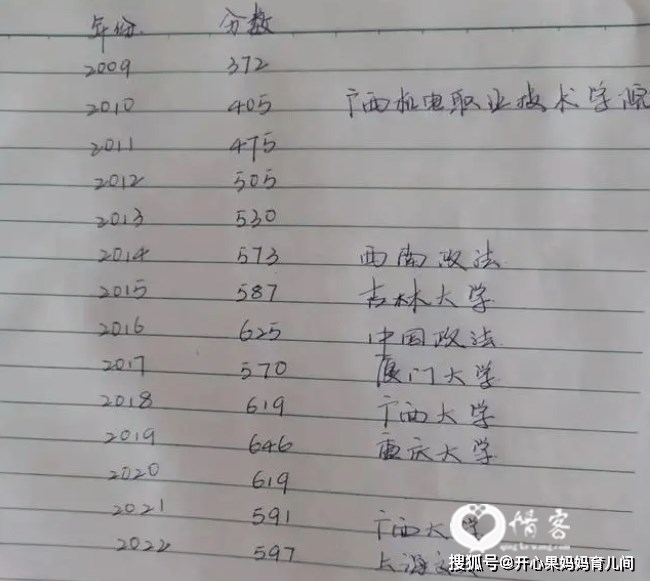 年份 分数
2009 372
2010 405 广西机电职业技术学院
2011 475
2012 505
2013 530
2014 573 西南政法
2015 587 吉林大学
2016 625 中国政法
2017 570 厦门大学
2018 619 广西大学
2019 646 重庆大学
2020 619
2021 591 广西大
2022 597 上海
情客
qingkelove.com
搜狐号@开心果妈妈育儿间